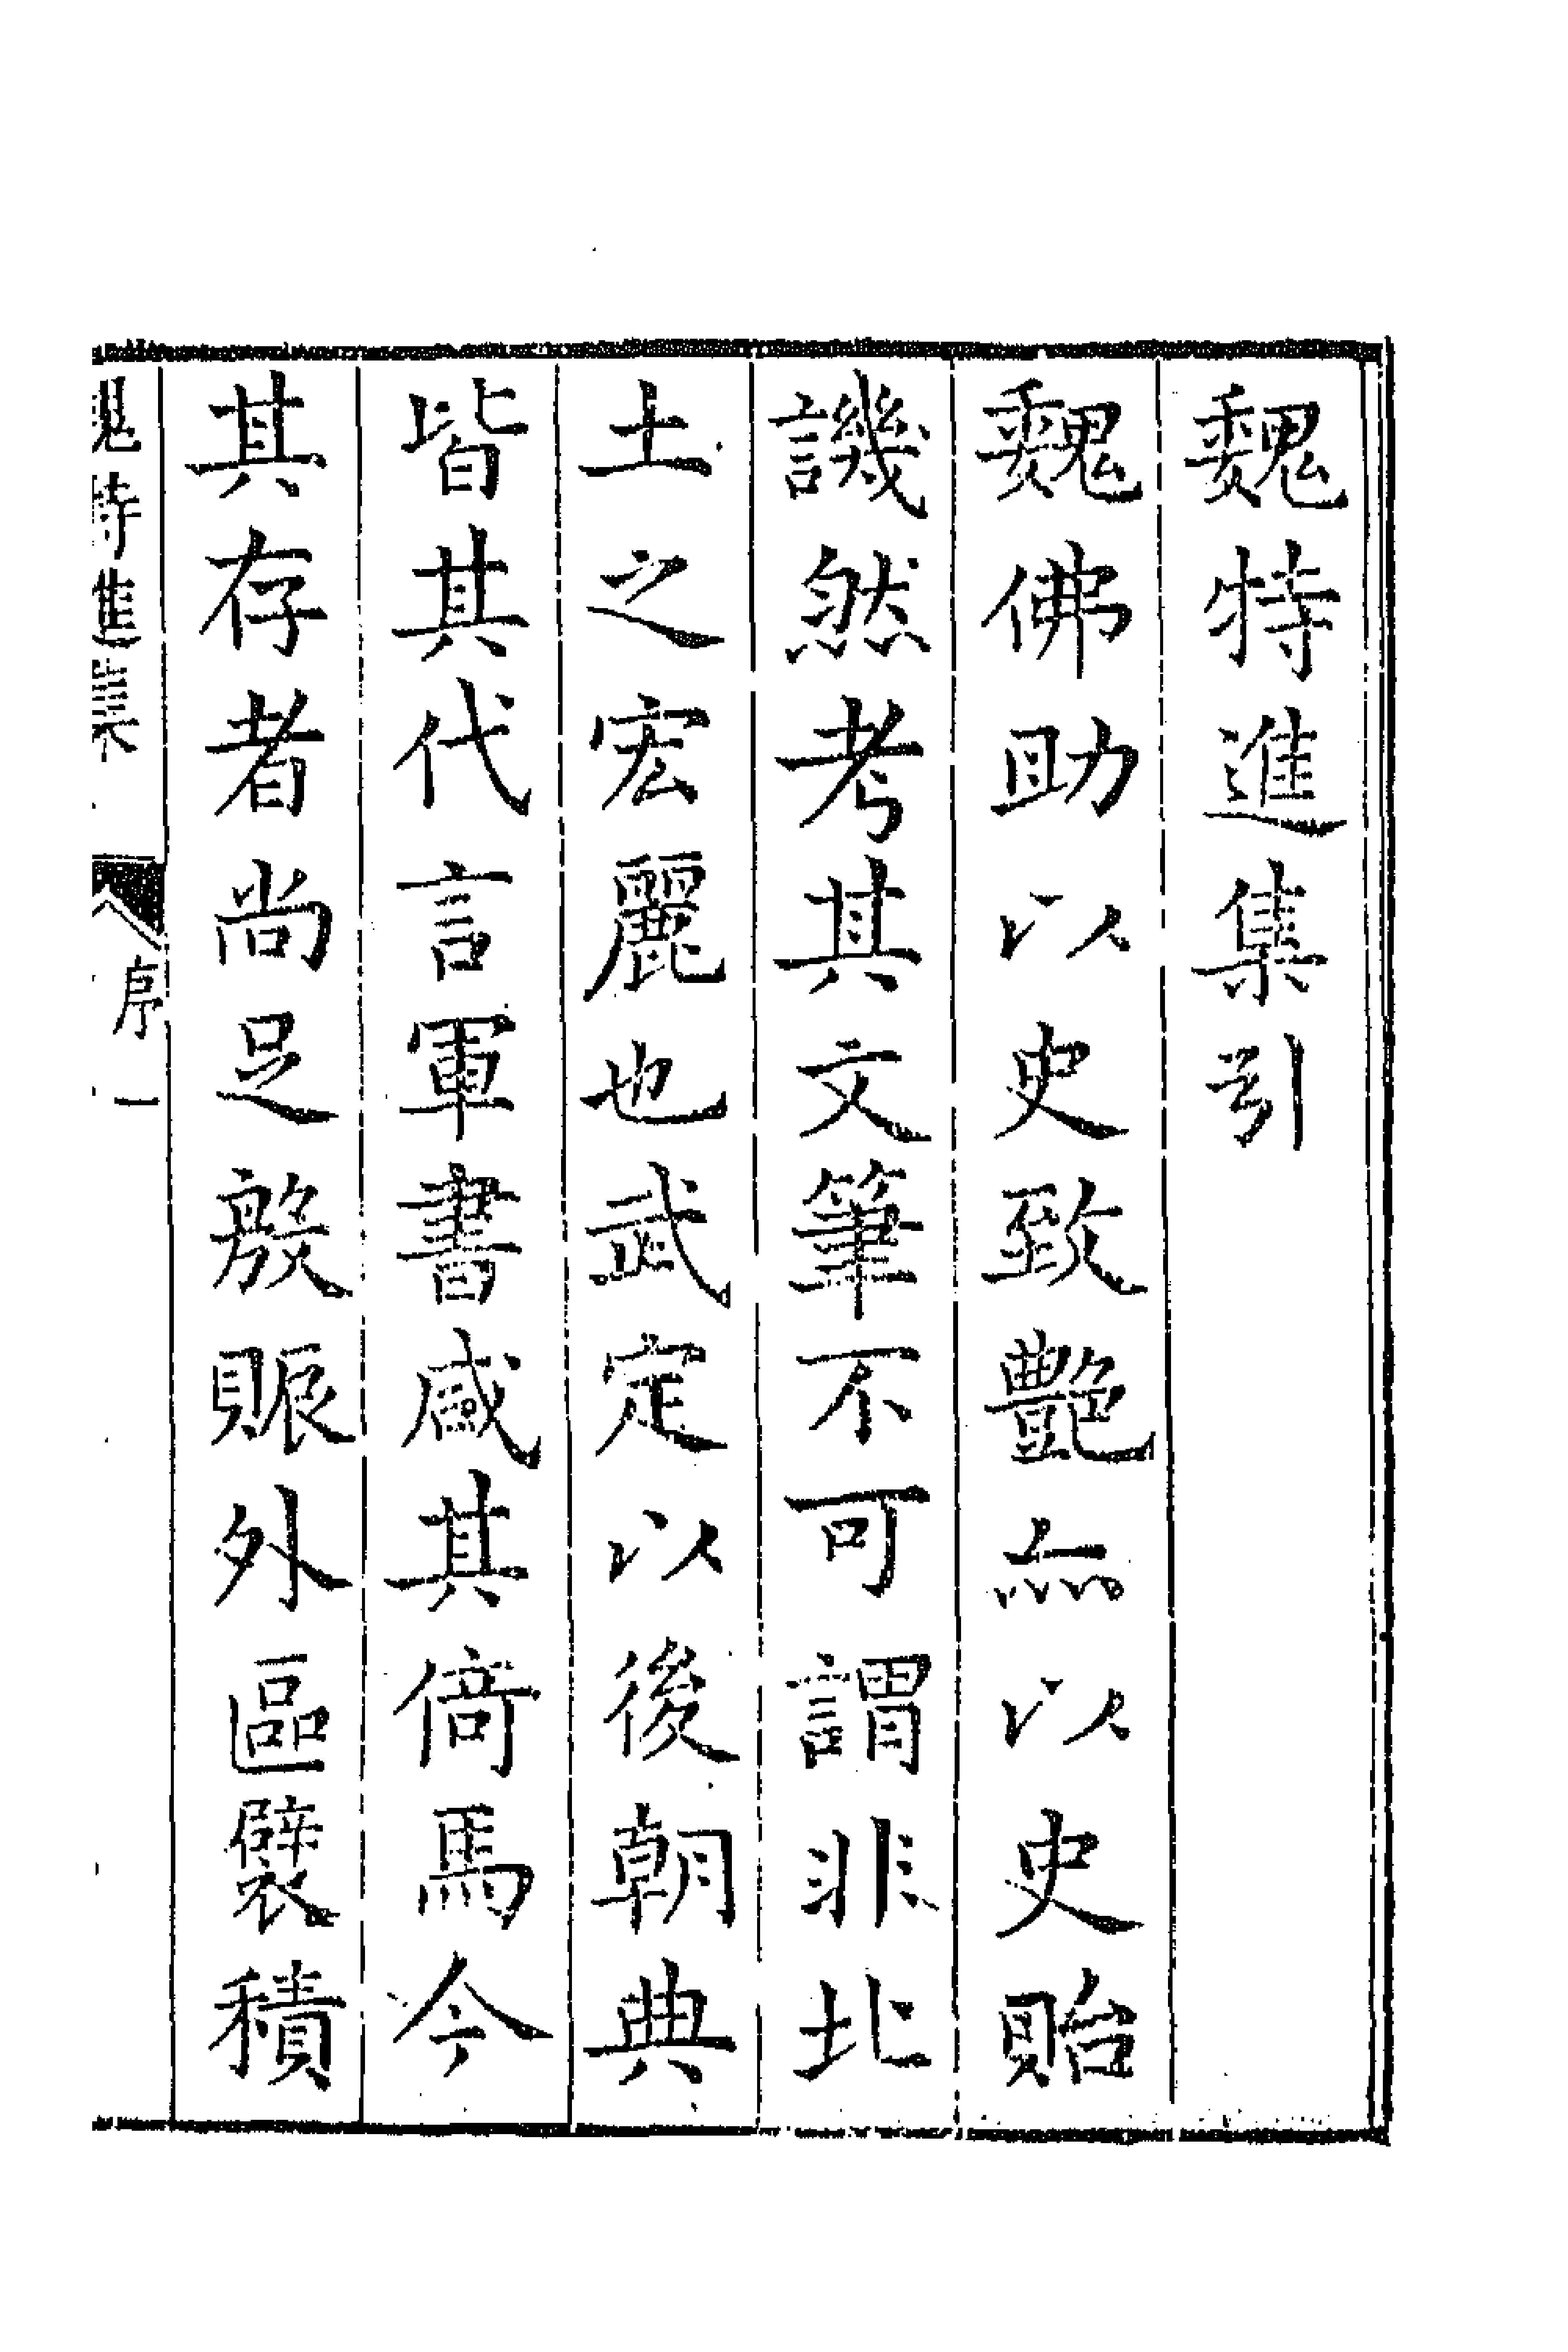 魏特進集引
魏佛助以史致艶亦以史貽
譏然考其文筆不可謂非北
土之宏麗也武定以後朝典
皆其代言軍書咸其倚馬今
其存者尚足殷賑外區襞積
魏特進集
序
一